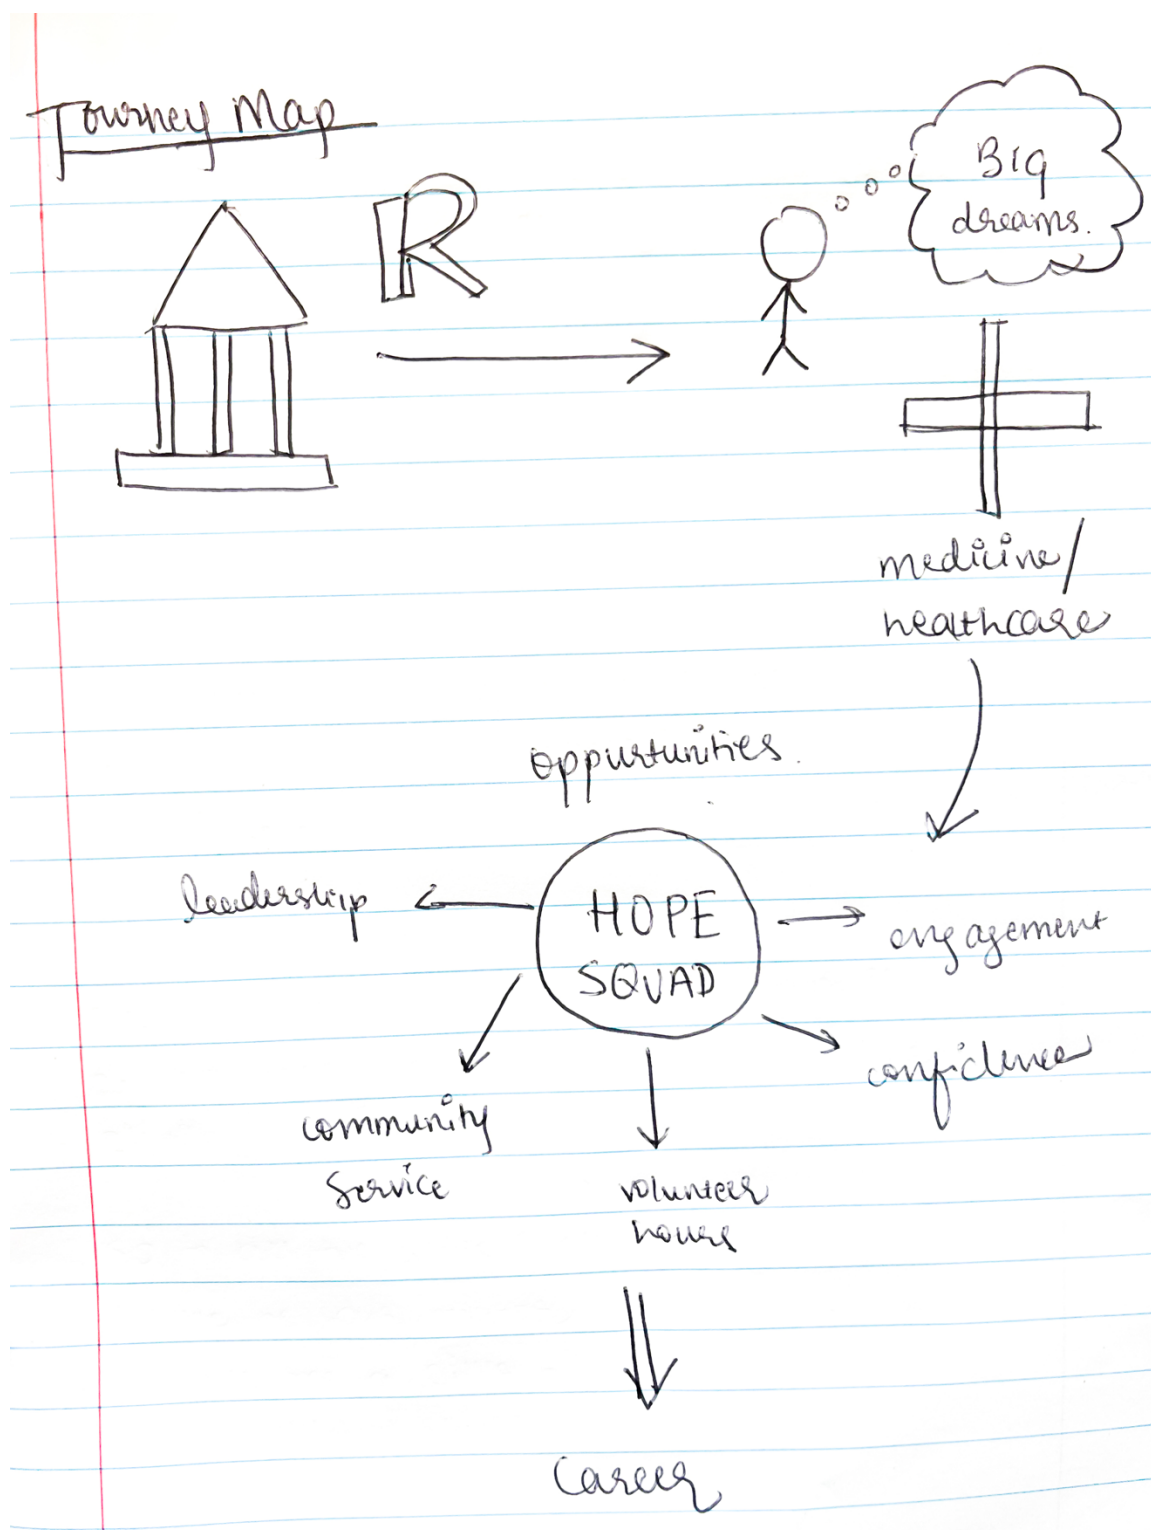 Journey Map
R
BIG
dreams.
medicine/
healthcare
oppurtunities.
HOPE
SQUAD
leadership
engagement
confidence
community
service
volunteer
hours
Career